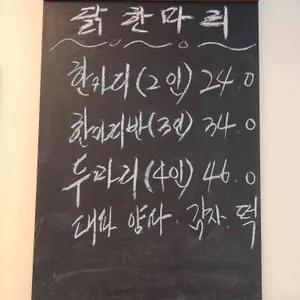 닭한마리
한마리(2인) 24.0
한마리반(3인) 34.0
두마리(4인) 46.0
대파 양파. 감자. 떡